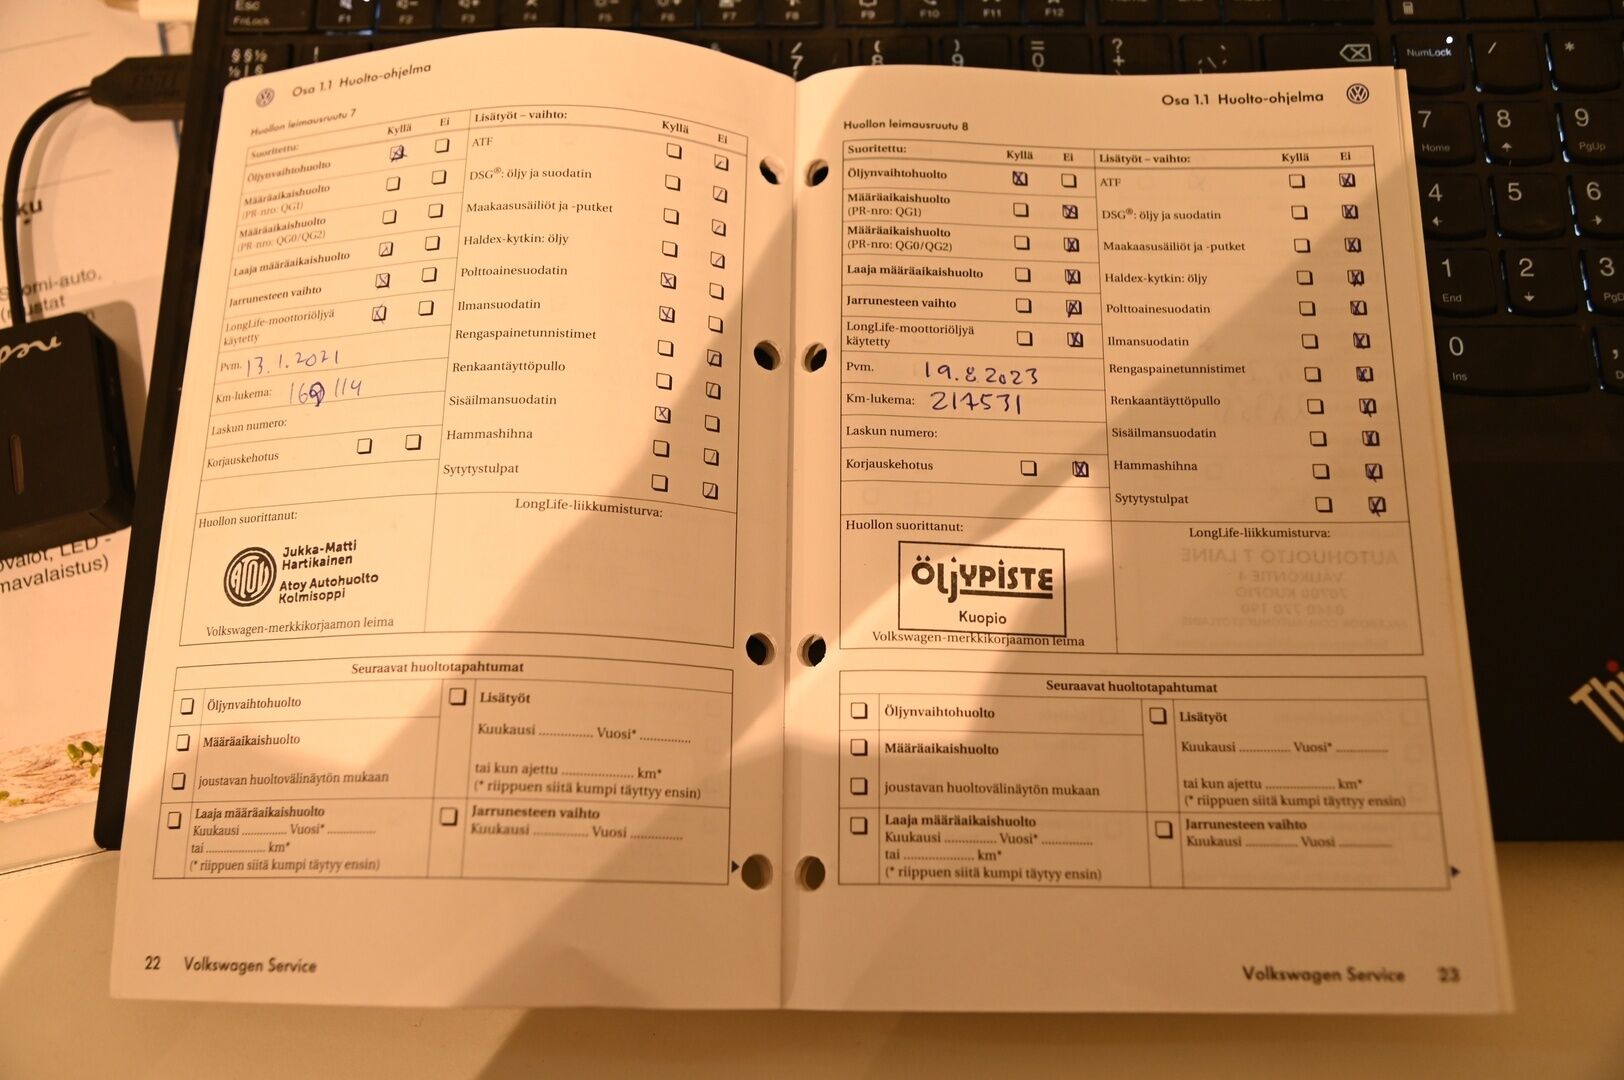 Osa 1.1 Huolto-ohjelma
Huollon leimausruutu 7
Suoritettu: Kyllä Ei
Öljynvaihtohuolto
Määräaikaishuolto
(PR-nro: QG1)
Määräaikaishuolto
(PR-nro: QG0/QG2)
Laaja määräaikaishuolto
Jarrunesteen vaihto
LongLife-moottoriöljyä
käytetty
Pvm. 13.1.2021
Km-lukema: 169 114
Laskun numero:
Korjauskehotus
Lisätyöt – vaihto: Kyllä Ei
ATF
DSG®: öljy ja suodatin
Maakaasusäiliöt ja -putket
Haldex-kytkin: öljy
Polttoainesuodatin
Ilmansuodatin
Rengaspainetunnistimet
Renkaantäyttöpullo
Sisäilmansuodatin
Hammashihna
Sytytystulpat
Huollon suorittanut:
ATOY
Jukka-Matti
Hartikainen
Atoy Autohuolto
Kolmisoppi
Volkswagen-merkkikorjaamon leima
LongLife-liikkumisturva:
Seuraavat huoltotapahtumat
Öljynvaihtohuolto
Määräaikaishuolto
joustavan huoltovälinäytön mukaan
Laaja määräaikaishuolto
Kuukausi .............. Vuosi* ...............
tai .................... km*
(* riippuen siitä kumpi täytyy ensin)
Lisätyöt
Kuukausi .............. Vuosi* ..............
tai kun ajettu ................... km*
(* riippuen siitä kumpi täyttyy ensin)
Jarrunesteen vaihto
Kuukausi .............. Vuosi ..............
22 Volkswagen Service
Osa 1.1 Huolto-ohjelma
Huollon leimausruutu 8
Suoritettu: Kyllä Ei
Öljynvaihtohuolto
Määräaikaishuolto
(PR-nro: QG1)
Määräaikaishuolto
(PR-nro: QG0/QG2)
Laaja määräaikaishuolto
Jarrunesteen vaihto
LongLife-moottoriöljyä
käytetty
Pvm. 19.8.2023
Km-lukema: 217531
Laskun numero:
Korjauskehotus
Lisätyöt – vaihto: Kyllä Ei
ATF
DSG®: öljy ja suodatin
Maakaasusäiliöt ja -putket
Haldex-kytkin: öljy
Polttoainesuodatin
Ilmansuodatin
Rengaspainetunnistimet
Renkaantäyttöpullo
Sisäilmansuodatin
Hammashihna
Sytytystulpat
Huollon suorittanut:
ÖLJYPISTE
Kuopio
Volkswagen-merkkikorjaamon leima
LongLife-liikkumisturva:
Seuraavat huoltotapahtumat
Öljynvaihtohuolto
Määräaikaishuolto
joustavan huoltovälinäytön mukaan
Laaja määräaikaishuolto
Kuukausi .............. Vuosi* ..............
tai ................... km*
(* riippuen siitä kumpi täytyy ensin)
Lisätyöt
Kuukausi .............. Vuosi* ..............
tai kun ajettu .................. km*
(* riippuen siitä kumpi täyttyy ensin)
Jarrunesteen vaihto
Kuukausi .............. Vuosi ..............
Volkswagen Service 23
Esc
FnLock
F1
F7
F8
F9
F10
F11
F12
NumLock / *
7 8 9
Home PgUp
4 5 6
1 2 3
End
0
Ins